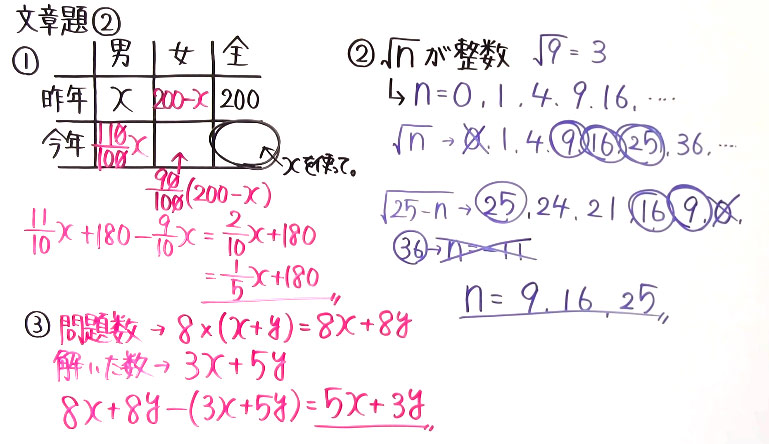 文章題②
①
男 女 全
昨年 x 200-x 200
今年 110/100 x
xを使って。
90/100(200-x)
11/10 x+180-9/10 x=2/10 x+180
=1/5 x+180
② √n が整数 √9=3
↳ n=0.1.4.9.16.‥‥
√n → 0.1.4.9.16.25.36.‥
√25-n → 25.24.21.16.9.0.
36→n=-11
n=9.16.25
③ 問題数 → 8×(x+y)=8x+8y
解いた数→ 3x+5y
8x+8y-(3x+5y)=5x+3y